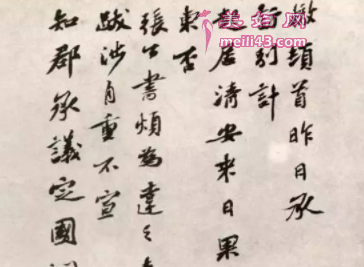 美婚网
www.meili43.com
首昨日承
訪別計
起居清安來日果
東否
張公書煩為達之
跋涉自重不宣
知郡承議定國